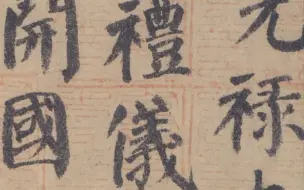 光禄
禮儀
開國